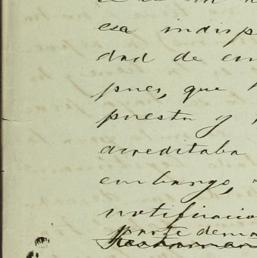 esa indisp
dad de en
pues, que
puesta y
acreditaba
embargo,
notificacio
parte dema